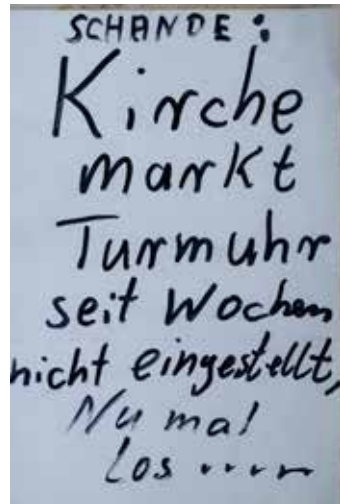 SCHANDE:
Kirche
markt
Turmuhr
seit Wochen
nicht eingestellt,
Nu mal
los .....